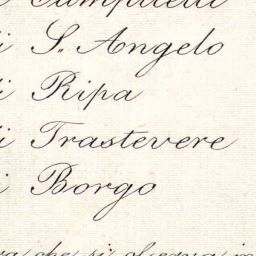 i S. Angelo
i Ripa
i Trastevere
i Borgo
che si